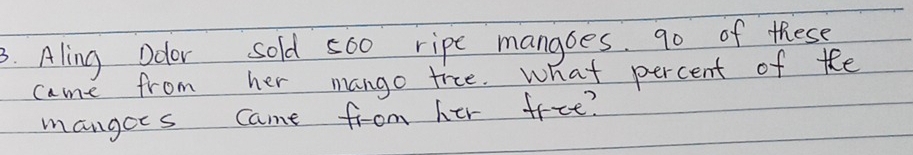 3. Aling Dolor sold 500 ripe mangoes. 90 of these
came from her mango tree. What percent of the
mangoes came from her tree?